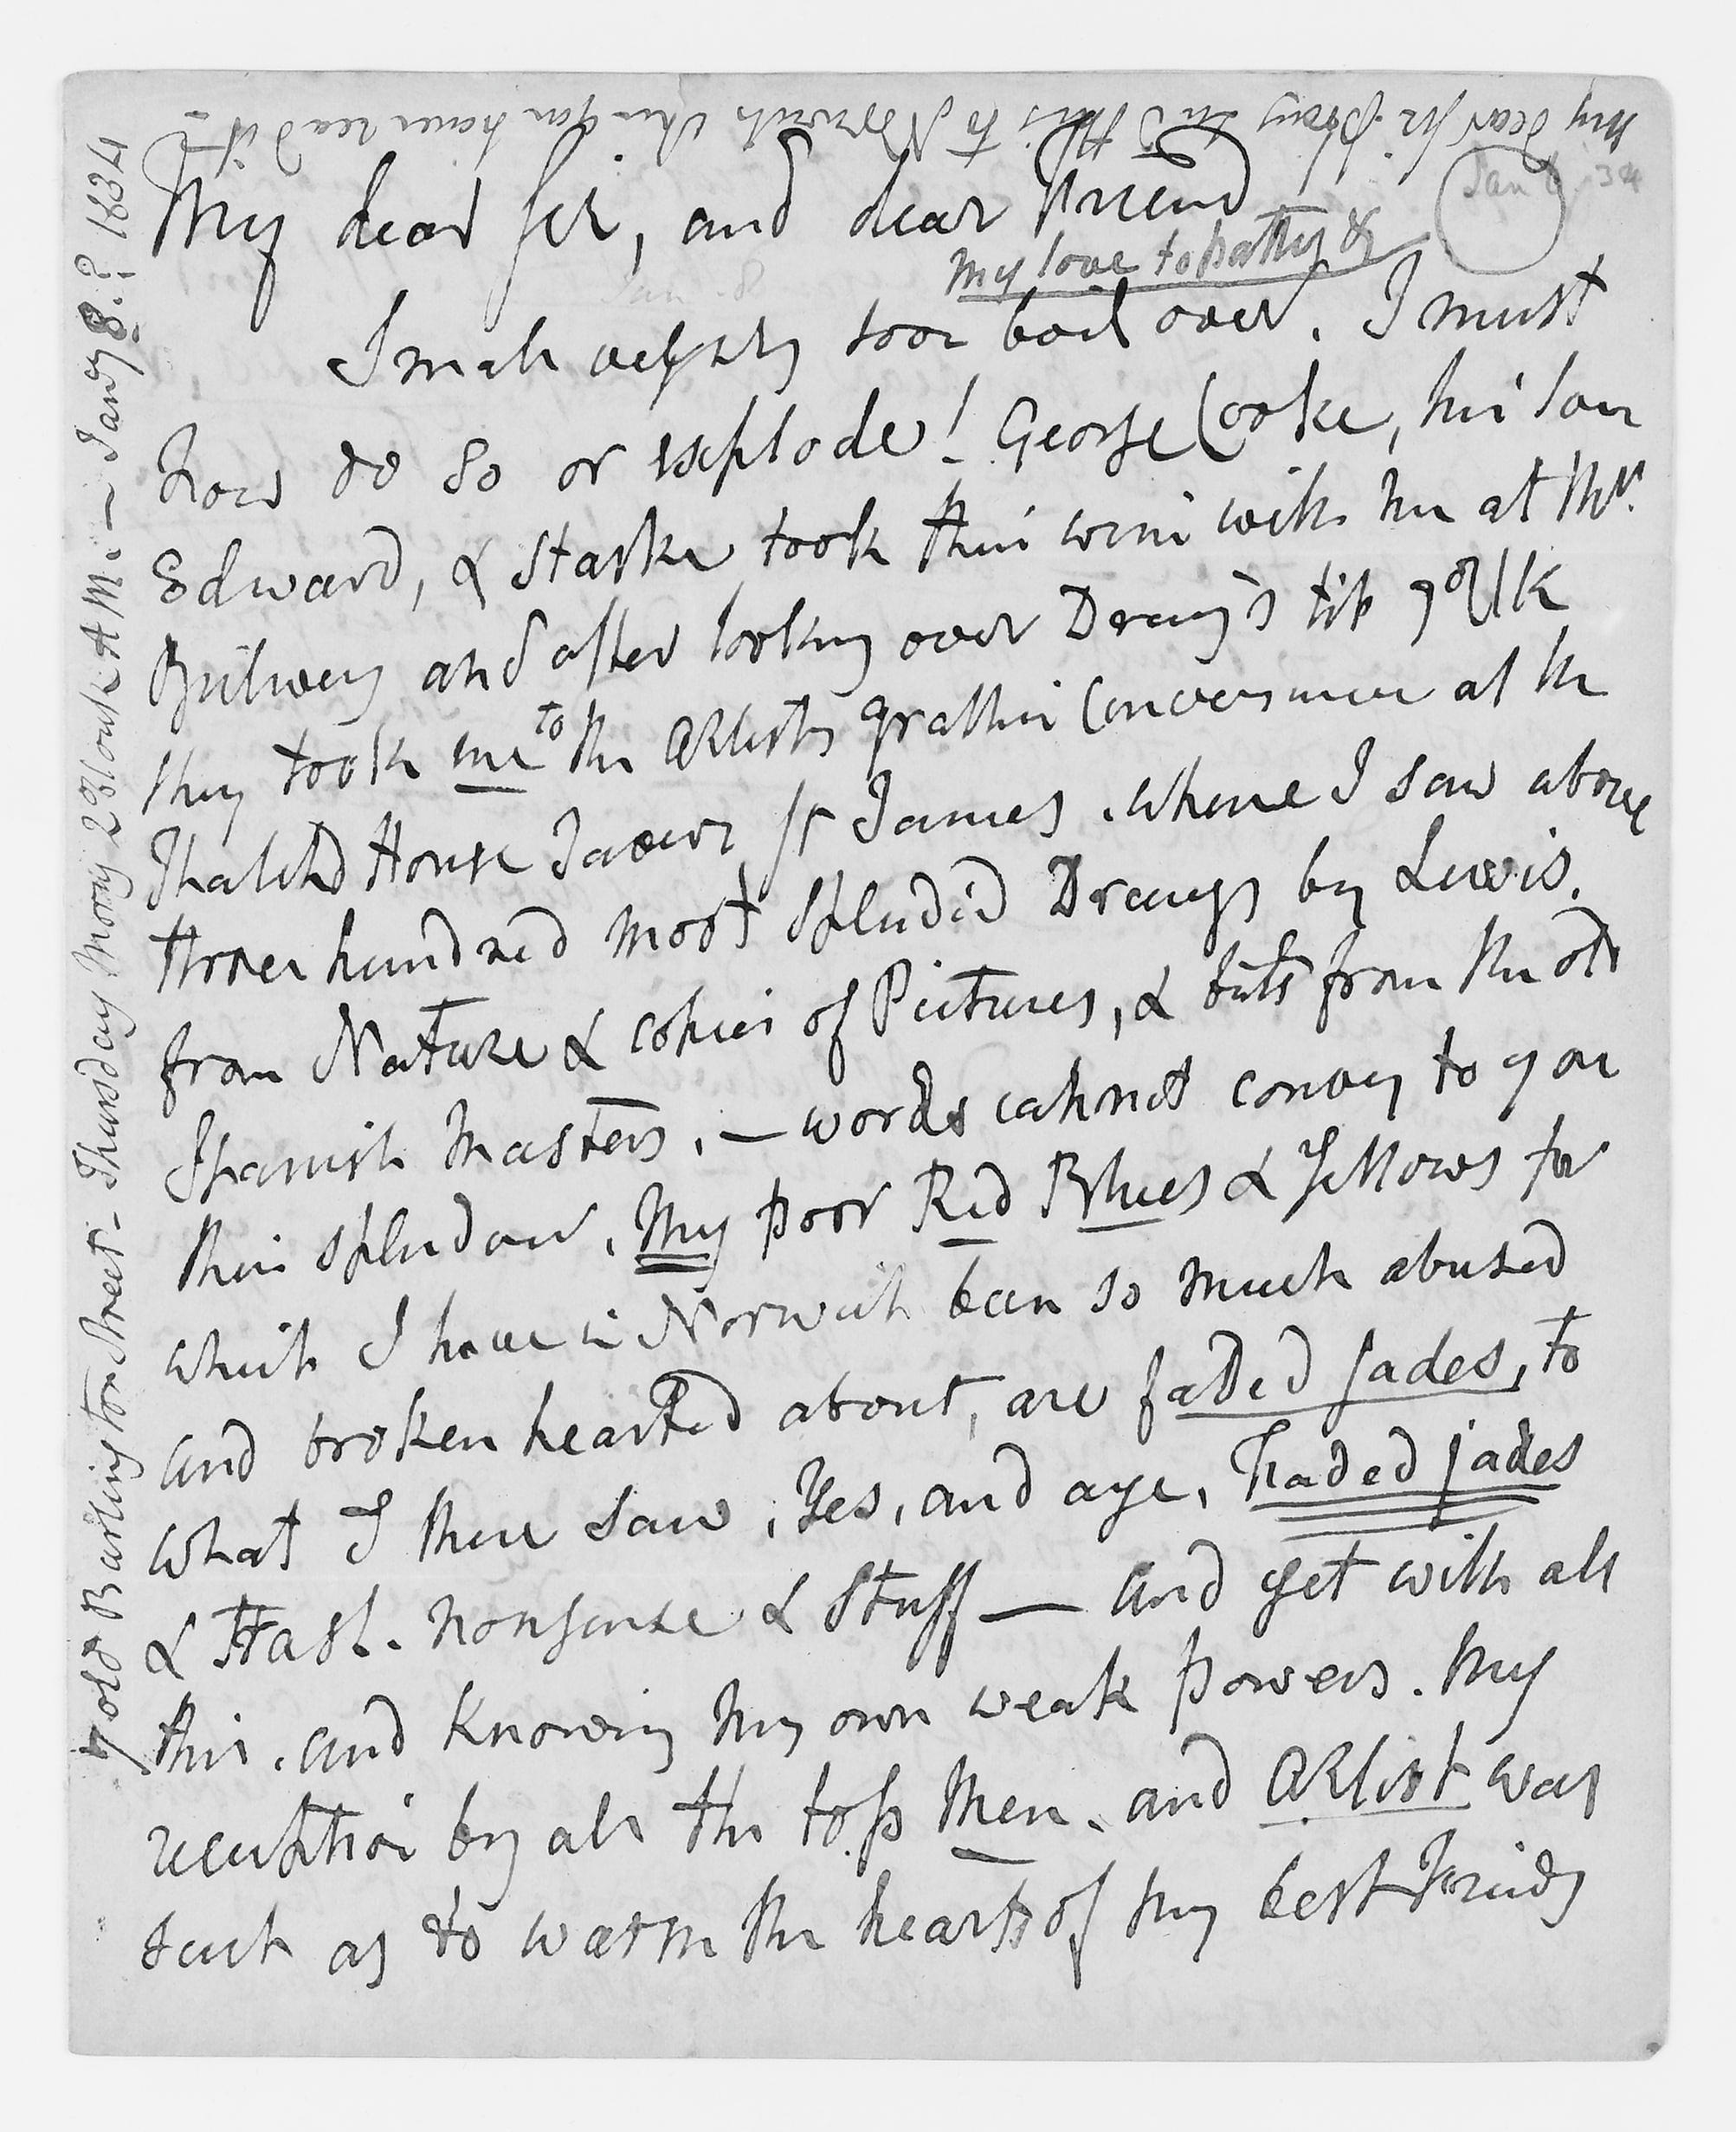 My dear Sir, and dear Friend
My love to patty &
I mah vessely soon boil over. I must
now do so or explode! George Cooke, his son
Edward, & Starke took their wine with me at Mrs.
and after looking over Drawgs till 9 oClk
they took me to the Artists Conversine at the
Thatched House Tavern St James. where I saw above
three hundred most splendid Drawgs by Lewis.
from Nature & copies of Pictures, & bits from the old
Spanish Masters. — words cahnot convey to you
their splendour. My poor Red Blues & Yellows for
which I have in Norwich been so much abused
and broken hearted about, are faded fades, to
what I there saw. Yes, and aye, Faded jades
& trash. nonsense & Stuff — and yet with all
this. and knowing my own weak powers. My
reception by all the top Men. and Artist was
such as to warm the hearts of my best Friends
7 old Burlington Street - Thursday Morng 2 oClock A M. — Jany 8.? 1834
My dear Mr. send this to Norwich when you have read it -
Jan 34